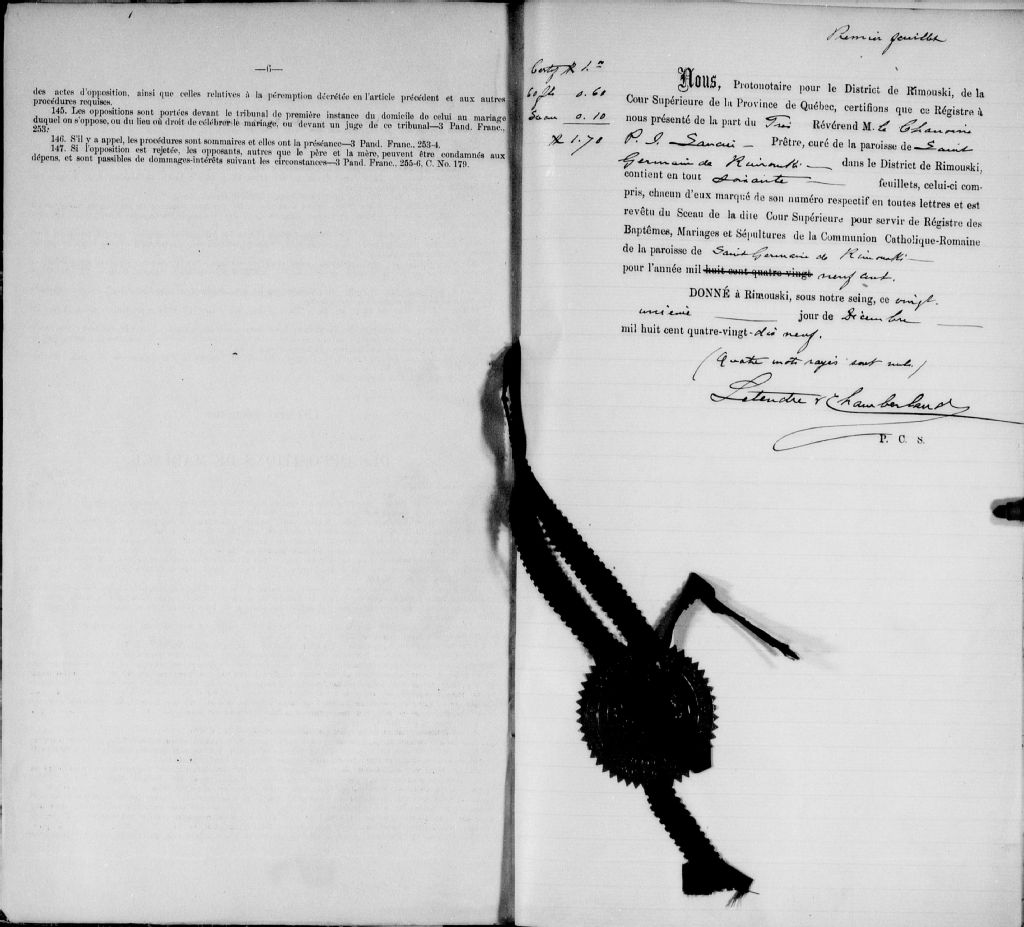 —6—
des actes d'opposition, ainsi que celles relatives à la péremption décrétée en l'article précédent et aux autres
procédures requises.
145. Les oppositions sont portées devant le tribunal de première instance du domicile de celui au mariage
duquel on s'oppose, ou du lieu où droit de célébrer le mariage, ou devant un juge de ce tribunal—3 Pand. Franc.,
253.
146. S'il y a appel, les procédures sont sommaires et elles ont la préséance—3 Pand. Franc., 253-4.
147. Si l'opposition est rejetée, les opposants, autres que le père et la mère, peuvent être condamnés aux
dépens, et sont passibles de dommages-intérêts suivant les circonstances—3 Pand. Franc., 255-6, C. No. 179.
Premier feuillet
Certif $ 1.00
60 flts 0.60
Sceau 0.10
$ 1.70
Nous, Protonotaire pour le District de Rimouski, de la
Cour Supérieure de la Province de Québec, certifions que ce Régistre à
nous présenté de la part du Très Révérend M. le Chanoine
P. J. — Prêtre, curé de la paroisse de Saint
Germain de Rimouski — dans le District de Rimouski,
contient en tout soixante — feuillets, celui-ci com-
pris, chacun d'eux marqué de son numéro respectif en toutes lettres et est
revêtu du Sceau de la dite Cour Supérieure pour servir de Régistre des
Baptêmes, Mariages et Sépultures de la Communion Catholique-Romaine
de la paroisse de Saint Germain de Rimouski —
pour l'année mil huit cent quatre-vingt neuf cent.
DONNÉ à Rimouski, sous notre seing, ce vingt
unième — jour de Décembre —
mil huit cent quatre-vingt-dix neuf.
(Quatre mots rayés sont nuls)
Letendre & Chamberland
P. C. S.